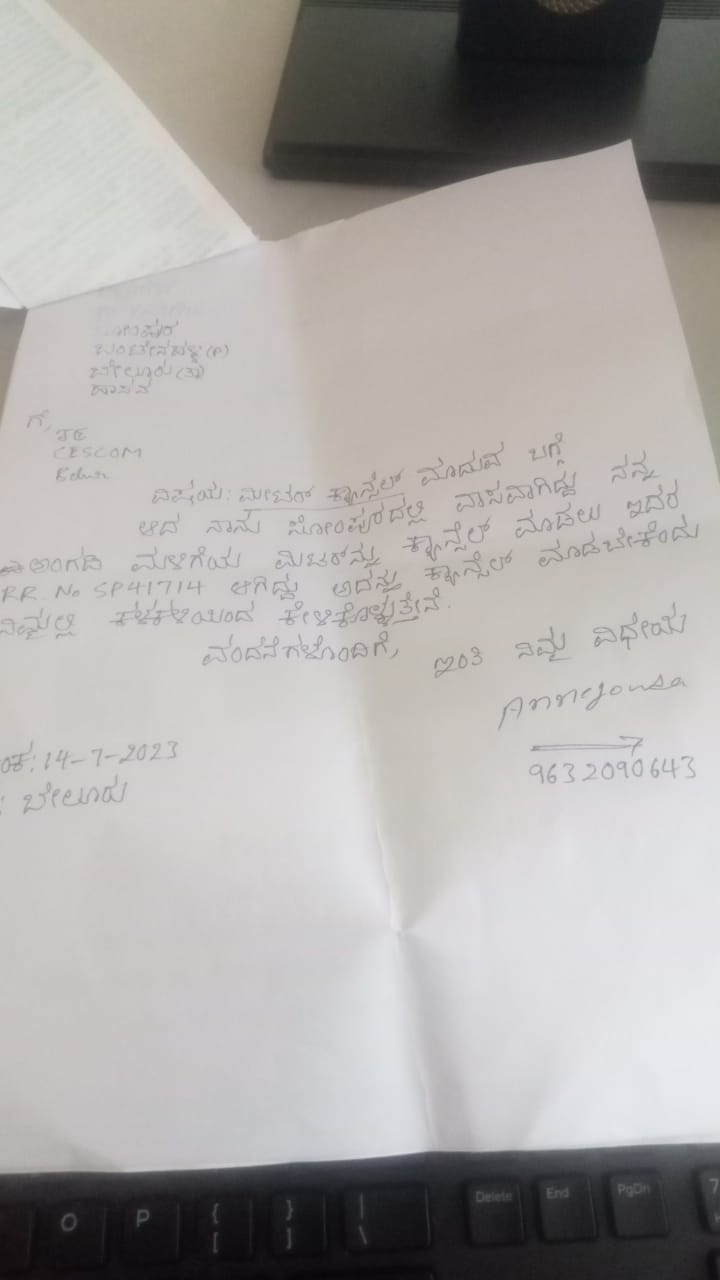 ಸೋಂಪುರ
ಬಂಟೇನಹಳ್ಳಿ (P)
ಬೇಲೂರು (ತಾ)
ಹಾಸನ
ಗೆ,
JE
CESCOM
Belur
ವಿಷಯ: ಮೀಟರ್ ಕ್ಯಾನ್ಸೆಲ್ ಮಾಡುವ ಬಗ್ಗೆ
ಆದ ನಾನು ಸೋಂಪುರದಲ್ಲಿ ವಾಸವಾಗಿದ್ದು ನನ್ನ
ಅಂಗಡಿ ಮಳಿಗೆಯ ಮಿಟರ್‌ನ್ನು ಕ್ಯಾನ್ಸೆಲ್ ಮಾಡಲು ಇದರ
RR. No SP41714 ಆಗಿದ್ದು ಅದನ್ನು ಕ್ಯಾನ್ಸೆಲ್ ಮಾಡಬೇಕೆಂದು
ನಿಮ್ಮಲ್ಲಿ ಕಳಕಳಿಯಿಂದ ಕೇಳಿಕೊಳ್ಳುತ್ತೇನೆ.
ವಂದನೆಗಳೊಂದಿಗೆ,
ಇಂತಿ ನಿಮ್ಮ ವಿಧೇಯ
Annegowda
9632090643
ಂಕ: 14-7-2023
: ಬೇಲೂರು
O
P
{
[
}
]
|
\
Delete
End
PgDn
7